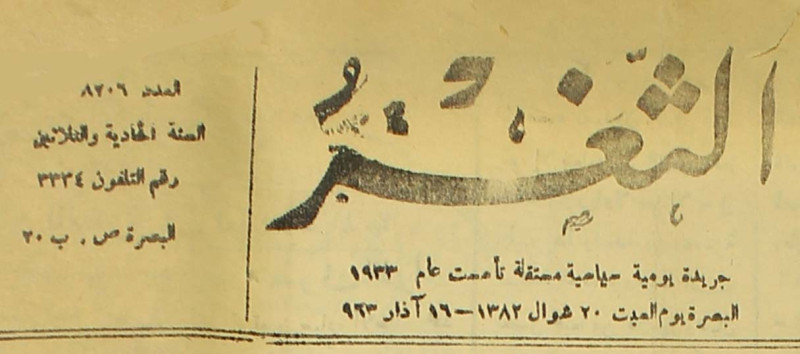 الثَّغْرُ
جريدة يومية سياسية مستقلة تأسست عام ١٩٣٣
البصرة يوم السبت ٢٠ شوال ١٣٨٢ — ١٦ آذار ٩٦٣
العدد ٨٢٠٦
السنة الحادية والثلاثين
رقم التلفون ٣٣٣٤
البصرة ص . ب ٢٠